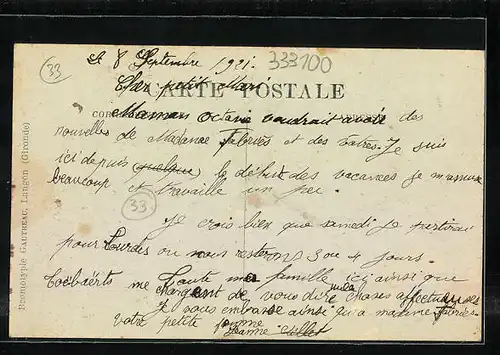 33
Le 8 Septembre 1921.
333100
CARTE POSTALE
Cher petit Mari
COR
Maman Octavie voudrait avoir des
nouvelles de Madame Fabriès et des vôtres. Je suis
ici depuis quelque le début des vacances je m'amuse
beaucoup et travaille un peu.
33
Je crois bien que samedi je partirai
pour Lourdes ou nous resterons 3 ou 4 jours.
Toute ma famille ici ainsi que
me chargent de vous dire mille choses affectueuses
Je vous embrasse ainsi qu'à madame Fabriès.
votre petite femme
Jeanne
Bromotypie GAUTREAU, Langon (Gironde)